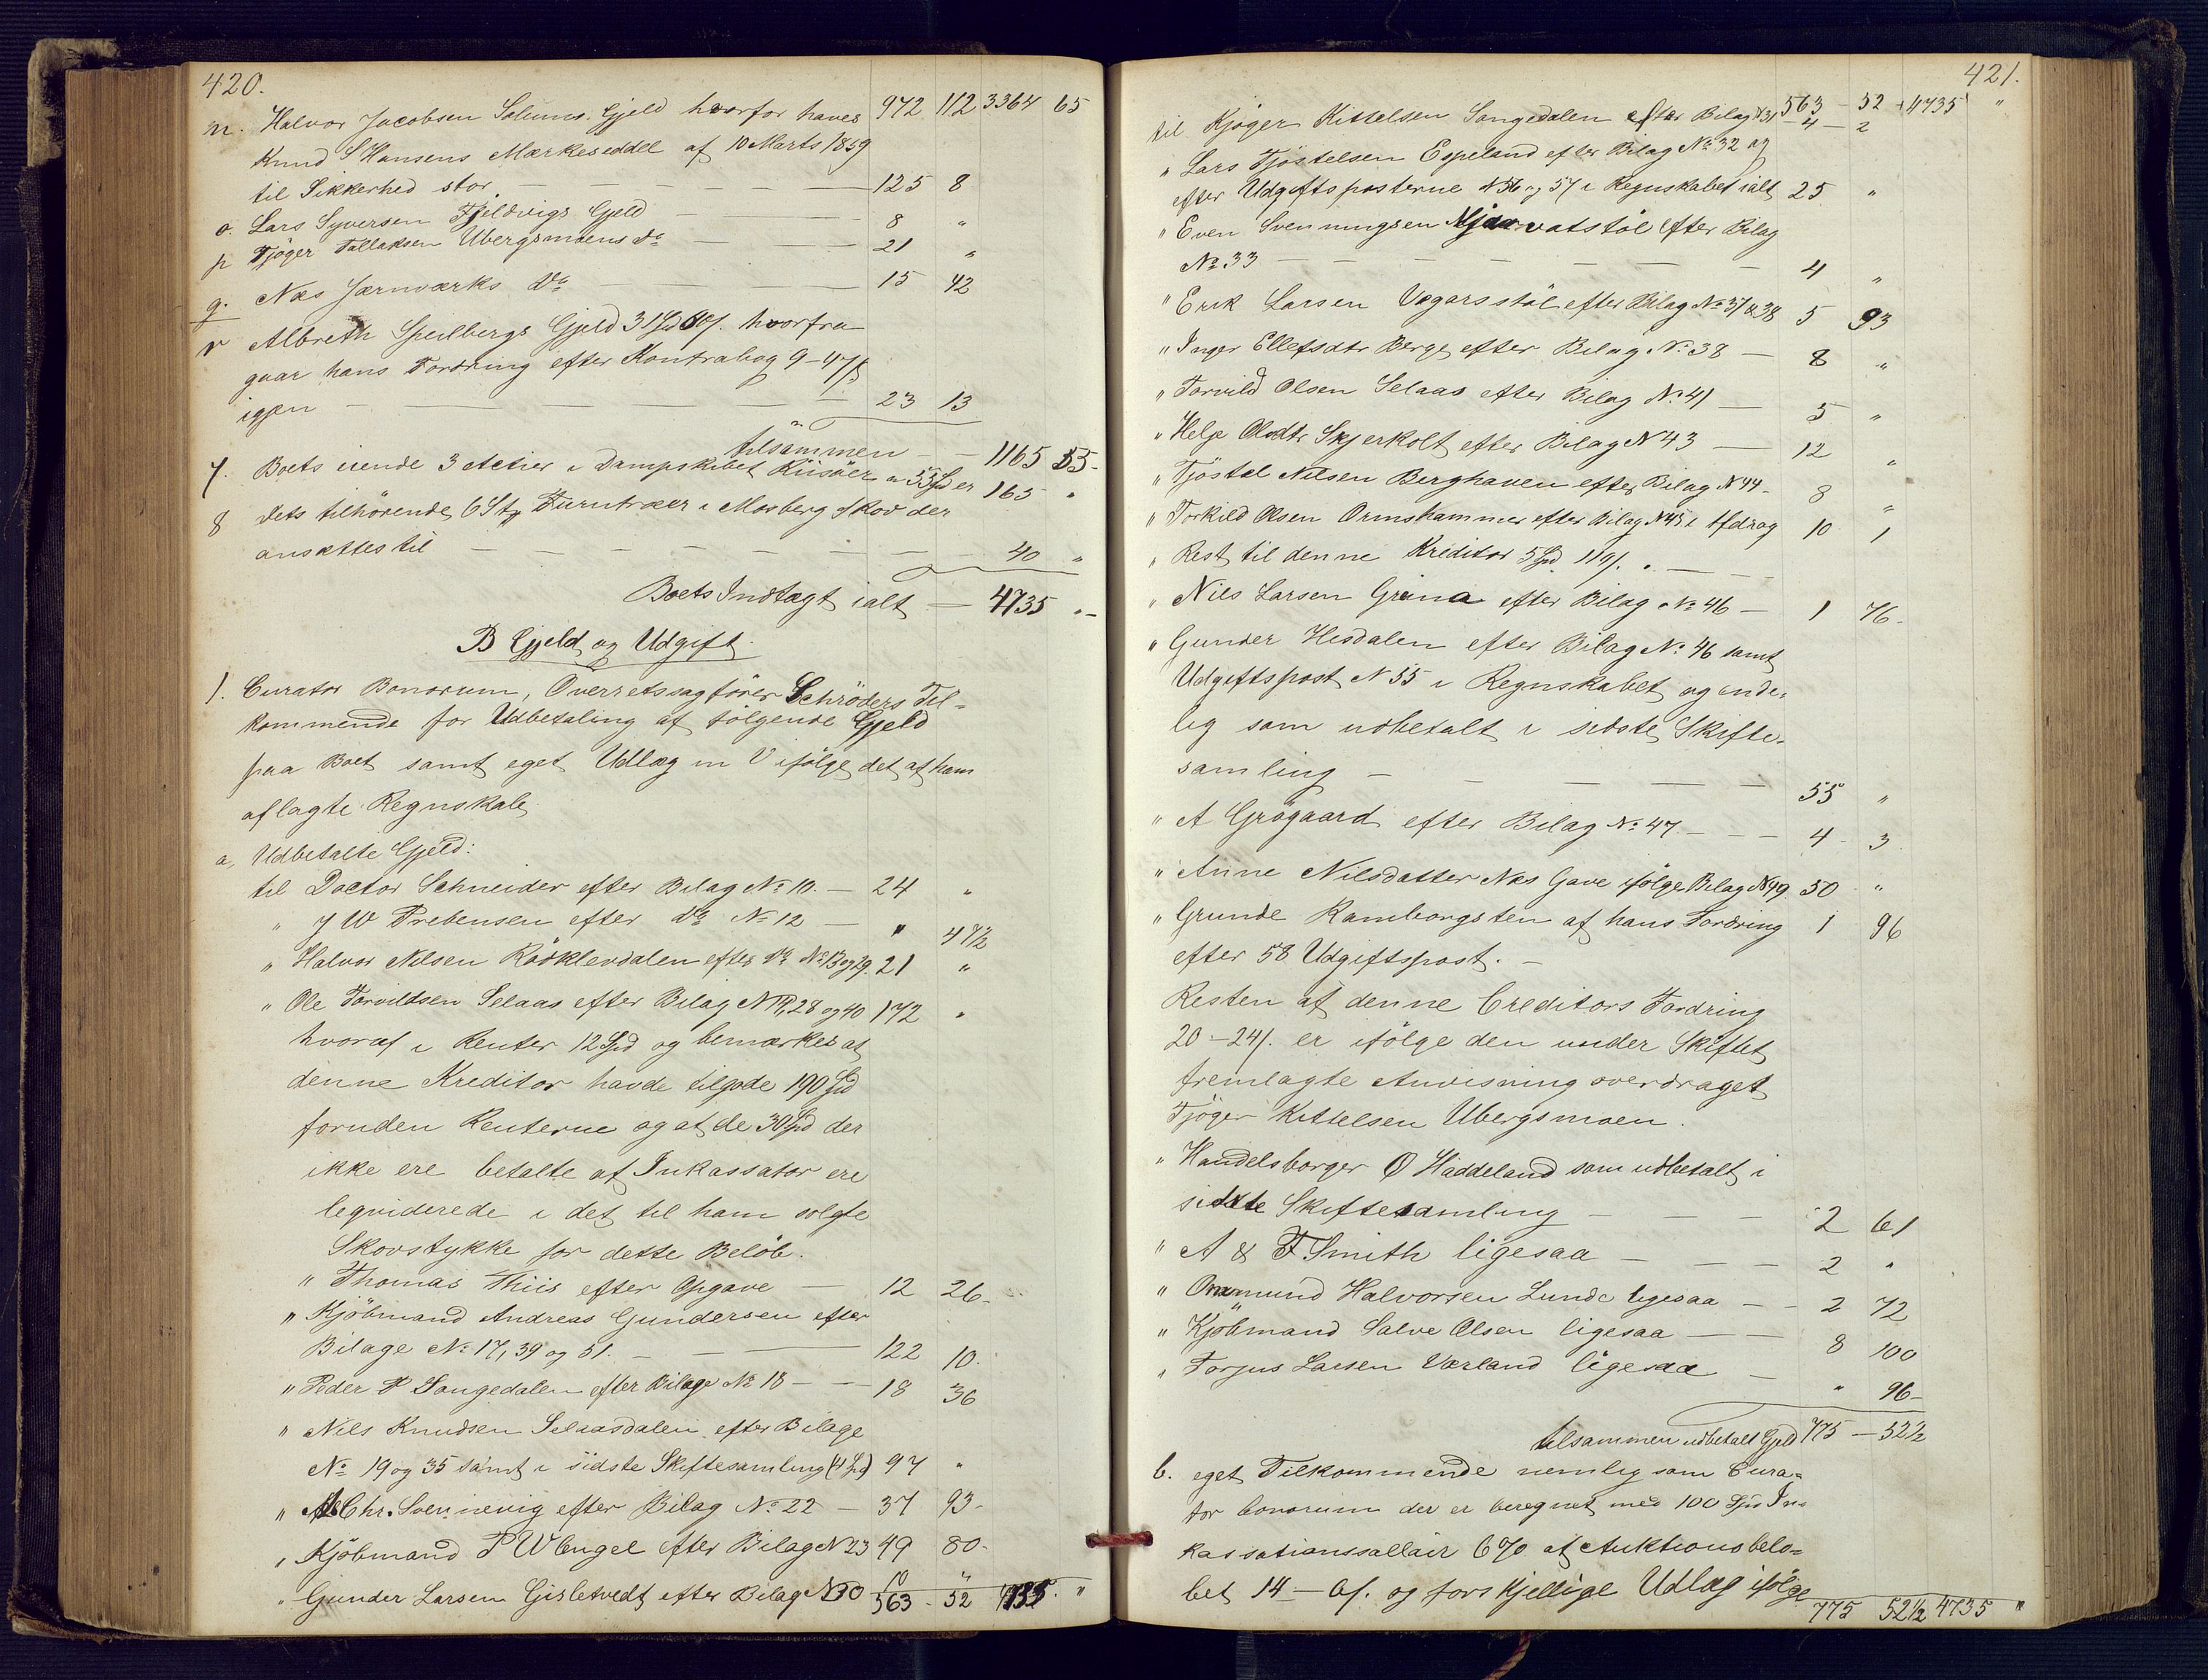 420.
972 112 3364 65
m. Halvor Jacobsen Solums Gjeld hvorfor haves
Knud S Hansens Mærkeseddel af 10 Marts 1859
til Sikkerhed stor — — — 125 8
o. Lars Syversen Fjeldvigs Gjeld — — 8 "
p Tjöger Tallaksen Ubergsmoens do — — 21 "
q. Næs Jernværks do — — 15 42
r Albreth Speilbergs Gjeld 31 Spd 60 s. hvorfra
gaar hans Fordring efter Kontrabog 9-47 s
igjen — — — 23 13
tilsammen — 1165 55-
7. Boets eiende 3 Actier i Dampskibet Riisöer a 55 Spd er 165 "
8 dets tilhörende 6 Stk Furutræer i Mosberg Skov der
ansættes til — — — — — 40 "
Boets Indtægt ialt — 4735 "-
B Gjeld og Udgift.
1. Curator Bonorum, Overretssagförer Schröders Til-
kommende for Udbetaling af fölgende Gjeld
paa Boet samt eget Udlæg m V ifölge det af ham
aflagte Regnskab
a, Udbetalte Gjeld:
til Doctor Schneider efter Bilag No 10. — 24 "
" J W Prebensen efter do No 12 — " 47½
" Halvor Nilsen Röðklevdalen efter do No 13 og 29. 21 "
" Ole Torvildsen Selaas efter Bilag N 14, 28 og 40 172 "
hvoraf i Renter 12 Spd og bemærkes at
denne Kreditor havde tilgode 190 Spd
foruden Renterne og at de 30 Spd der
ikke ere betalte af Inkassator ere
leqviderede i det til ham solgte
Skovstykke for dette Belöb.
" Thomas Thiis efter Opgave — 12 26-
" Kjöbmand Andreas Gundersen efter
Bilage No 17, 39 og 51. — — — 122 10.
" Peder P Songedalen efter Bilage No 18 — — 18 36
" Nils Knudsen Selaasdalen efter Bilage
No 19 og 35 samt i sidste Skiftesamling (4 Spd) 97 "
" Chr. Svennevig efter Bilag No 22 — 37 93-
" Kjöbmand P W Engel efter Bilag N 23 49 80-
" Gunder Larsen Gisletvedt efter Bilag N 30 10 "
563 - 52 4735. "
421.
563 - 52 - 4735 "
til Kjöger Kittelsen Songedalen efter Bilag N 31 - 4 - 2
" Lars Tjöstelsen Espeland efter Bilag No 32 og
efter Udgiftsposterne N 56 og 57 i Regnskabet ialt 25 "
" Even Svenningsen Mjaavatstöl efter Bilag
No 33 — — — — — — 4 "
" Erik Larsen Vegarsstöl efter Bilag No 37 & 38 5 93
" Inger Ellefsdtr Berge efter Bilag No 38 — 8 "
" Torvild Olsen Selaas efter Bilag No 41 — 5 "
" Helge Olsdtr Skjerkolt efter Bilag N 43 — 12 "
" Tjöstel Nilsen Berghaven efter Bilag N 44 - 8 "
" Torkild Olsen Ormshammer efter Bilag N 45 i Afdrag 10 1
" Rest til denne Kreditor 5 Spd 119 s. " — — —
" Nils Larsen Grina efter Bilag No 46 — 1 76-
" Gunder Hesdalen efter Bilag No 46 samt
Udgiftspost N 55 i Regnskabet og ende-
lig som udbetalt i sidste Skifte-
samling — — — — — 55 "
" A Grögaard efter Bilag No 47. — — — 4 - 3
" Anne Nilsdatter Næs Gave ifölge Bilag N 49. 50 "
" Grunde Ramborgsten af hans Fordring 1 96
efter 58 Udgiftspost. —
Resten af denne Creditors Fordring
20-24 s. er ifölge den under Skiftet
fremlagte Anvisning overdraget
Tjöger Kittelsen Ubergsmoen.
" Handelsborger O Haddeland som udbetalt i
sidste Skiftesamling — — — 2 61
" A & F Smith ligesaa — — — 2 "
" Omund Halvorsen Lunde ligesaa — — 2 72
" Kjöbmand Salve Olsen ligesaa — — 8 100
" Torjus Larsen Værland ligesaa — " 96-
tilsammen udbetalt Gjeld 775 — 52½
b. eget Tilkommende nemlig som Cura-
tor bonorum der er beregnet med 100 Spd In-
kassationssallair 6% af Auktionsbelö-
bet 14 — 6 s. og forskjellige Udlæg ifölge
775 52½ 4735 "